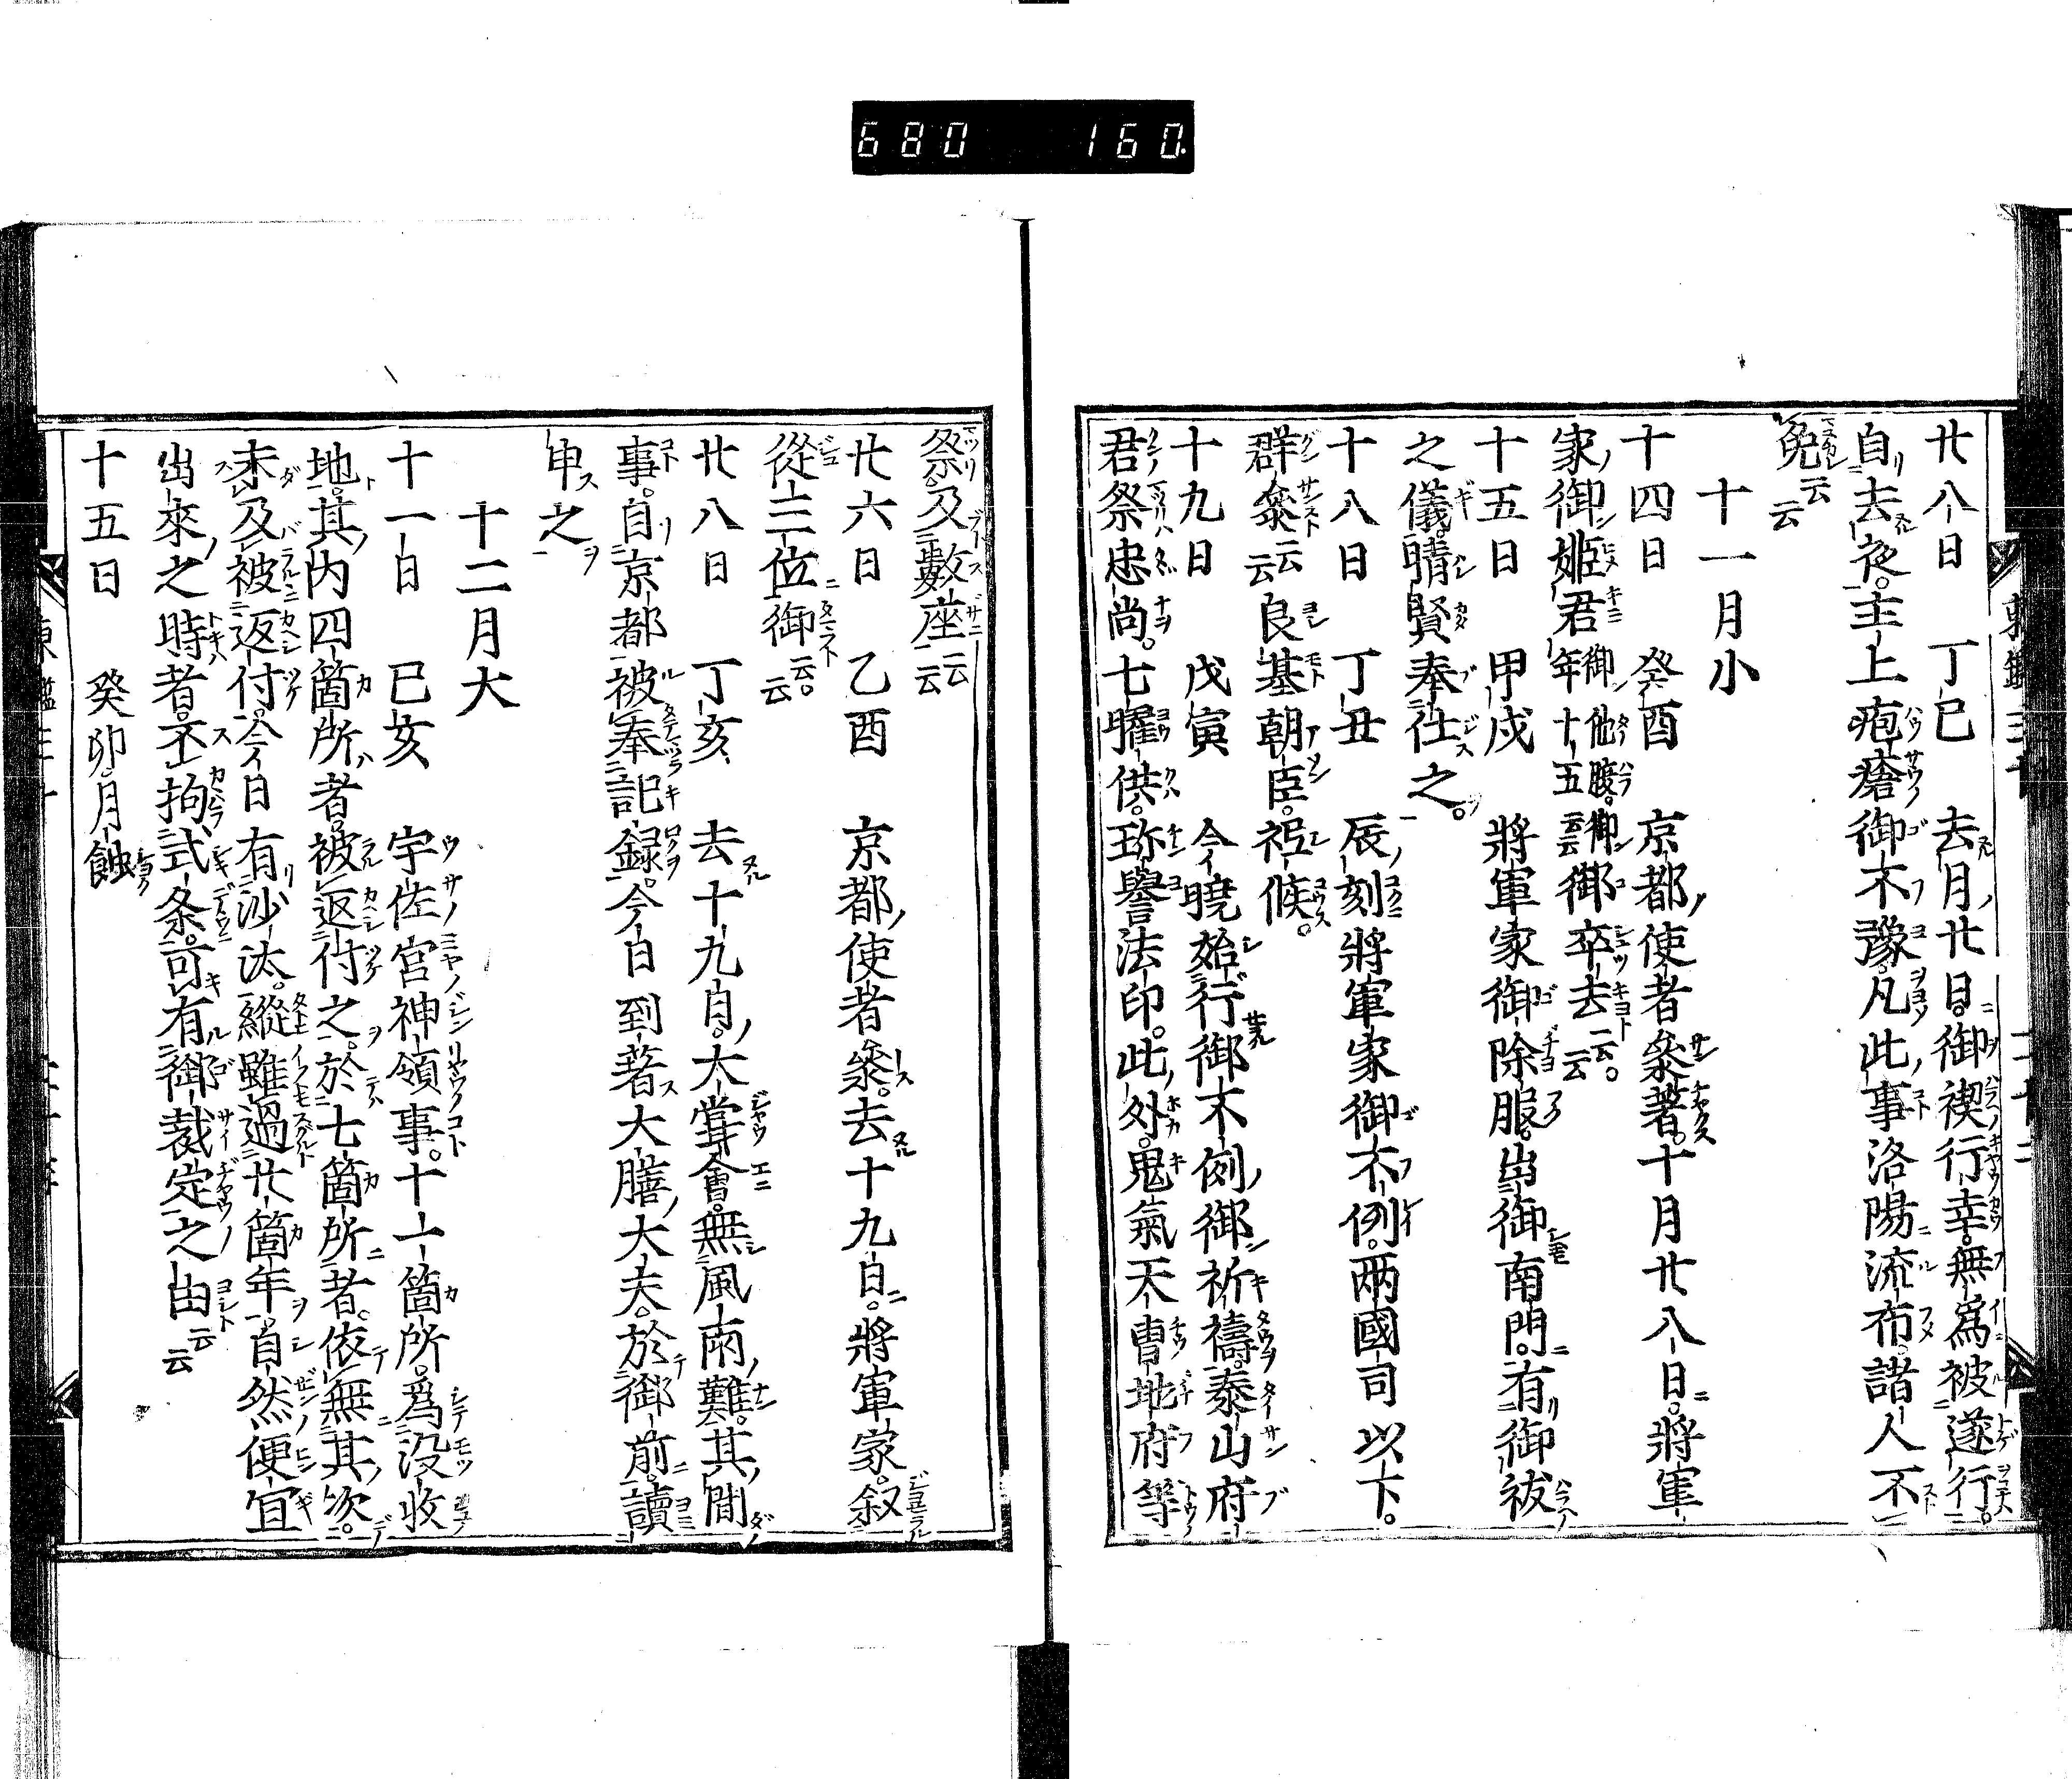 680 160.
廿八日 丁巳 去月廿日。御禊行幸。無為被遂行。
自去夜。主上疱瘡御不豫。凡此事洛陽流布。諸人不
免云云
十一月小
十四日 癸酉 京都使者參著。十月廿八日。將軍
家御姬君御他腹。御年十五云云御卒去云云。
十五日 甲戌 將軍家御除服。出御南門。有御祓
之儀。晴賢奉仕之。
十八日 丁丑 辰刻將軍家御不例。兩國司以下。
群參云云良基朝臣。祗候。
十九日 戊寅 今曉始行御不例御祈禱。泰山府
君祭忠尚。七曜供。珎譽法印。此外。鬼氣天曹地府等
祭。及數座云云
廿六日 乙酉 京都使者參。去十九日。將軍家。叙
從三位御云云。
廿八日 丁亥 去十九日。大嘗會。無風雨難。其間
事。自京都被奉記錄。今日到著大膳大夫。於御前。讀
申之
十二月大
十一日 己亥 宇佐宮神領事。十一箇所。爲没收
地。其内四箇所者。被返付之。於七箇所者。依無其次。
未及被返付。今日有沙汰。縱雖過廿箇年。自然便宜
出來之時者。不拘式条。可有御裁定之由云云
十五日 癸卯月蝕